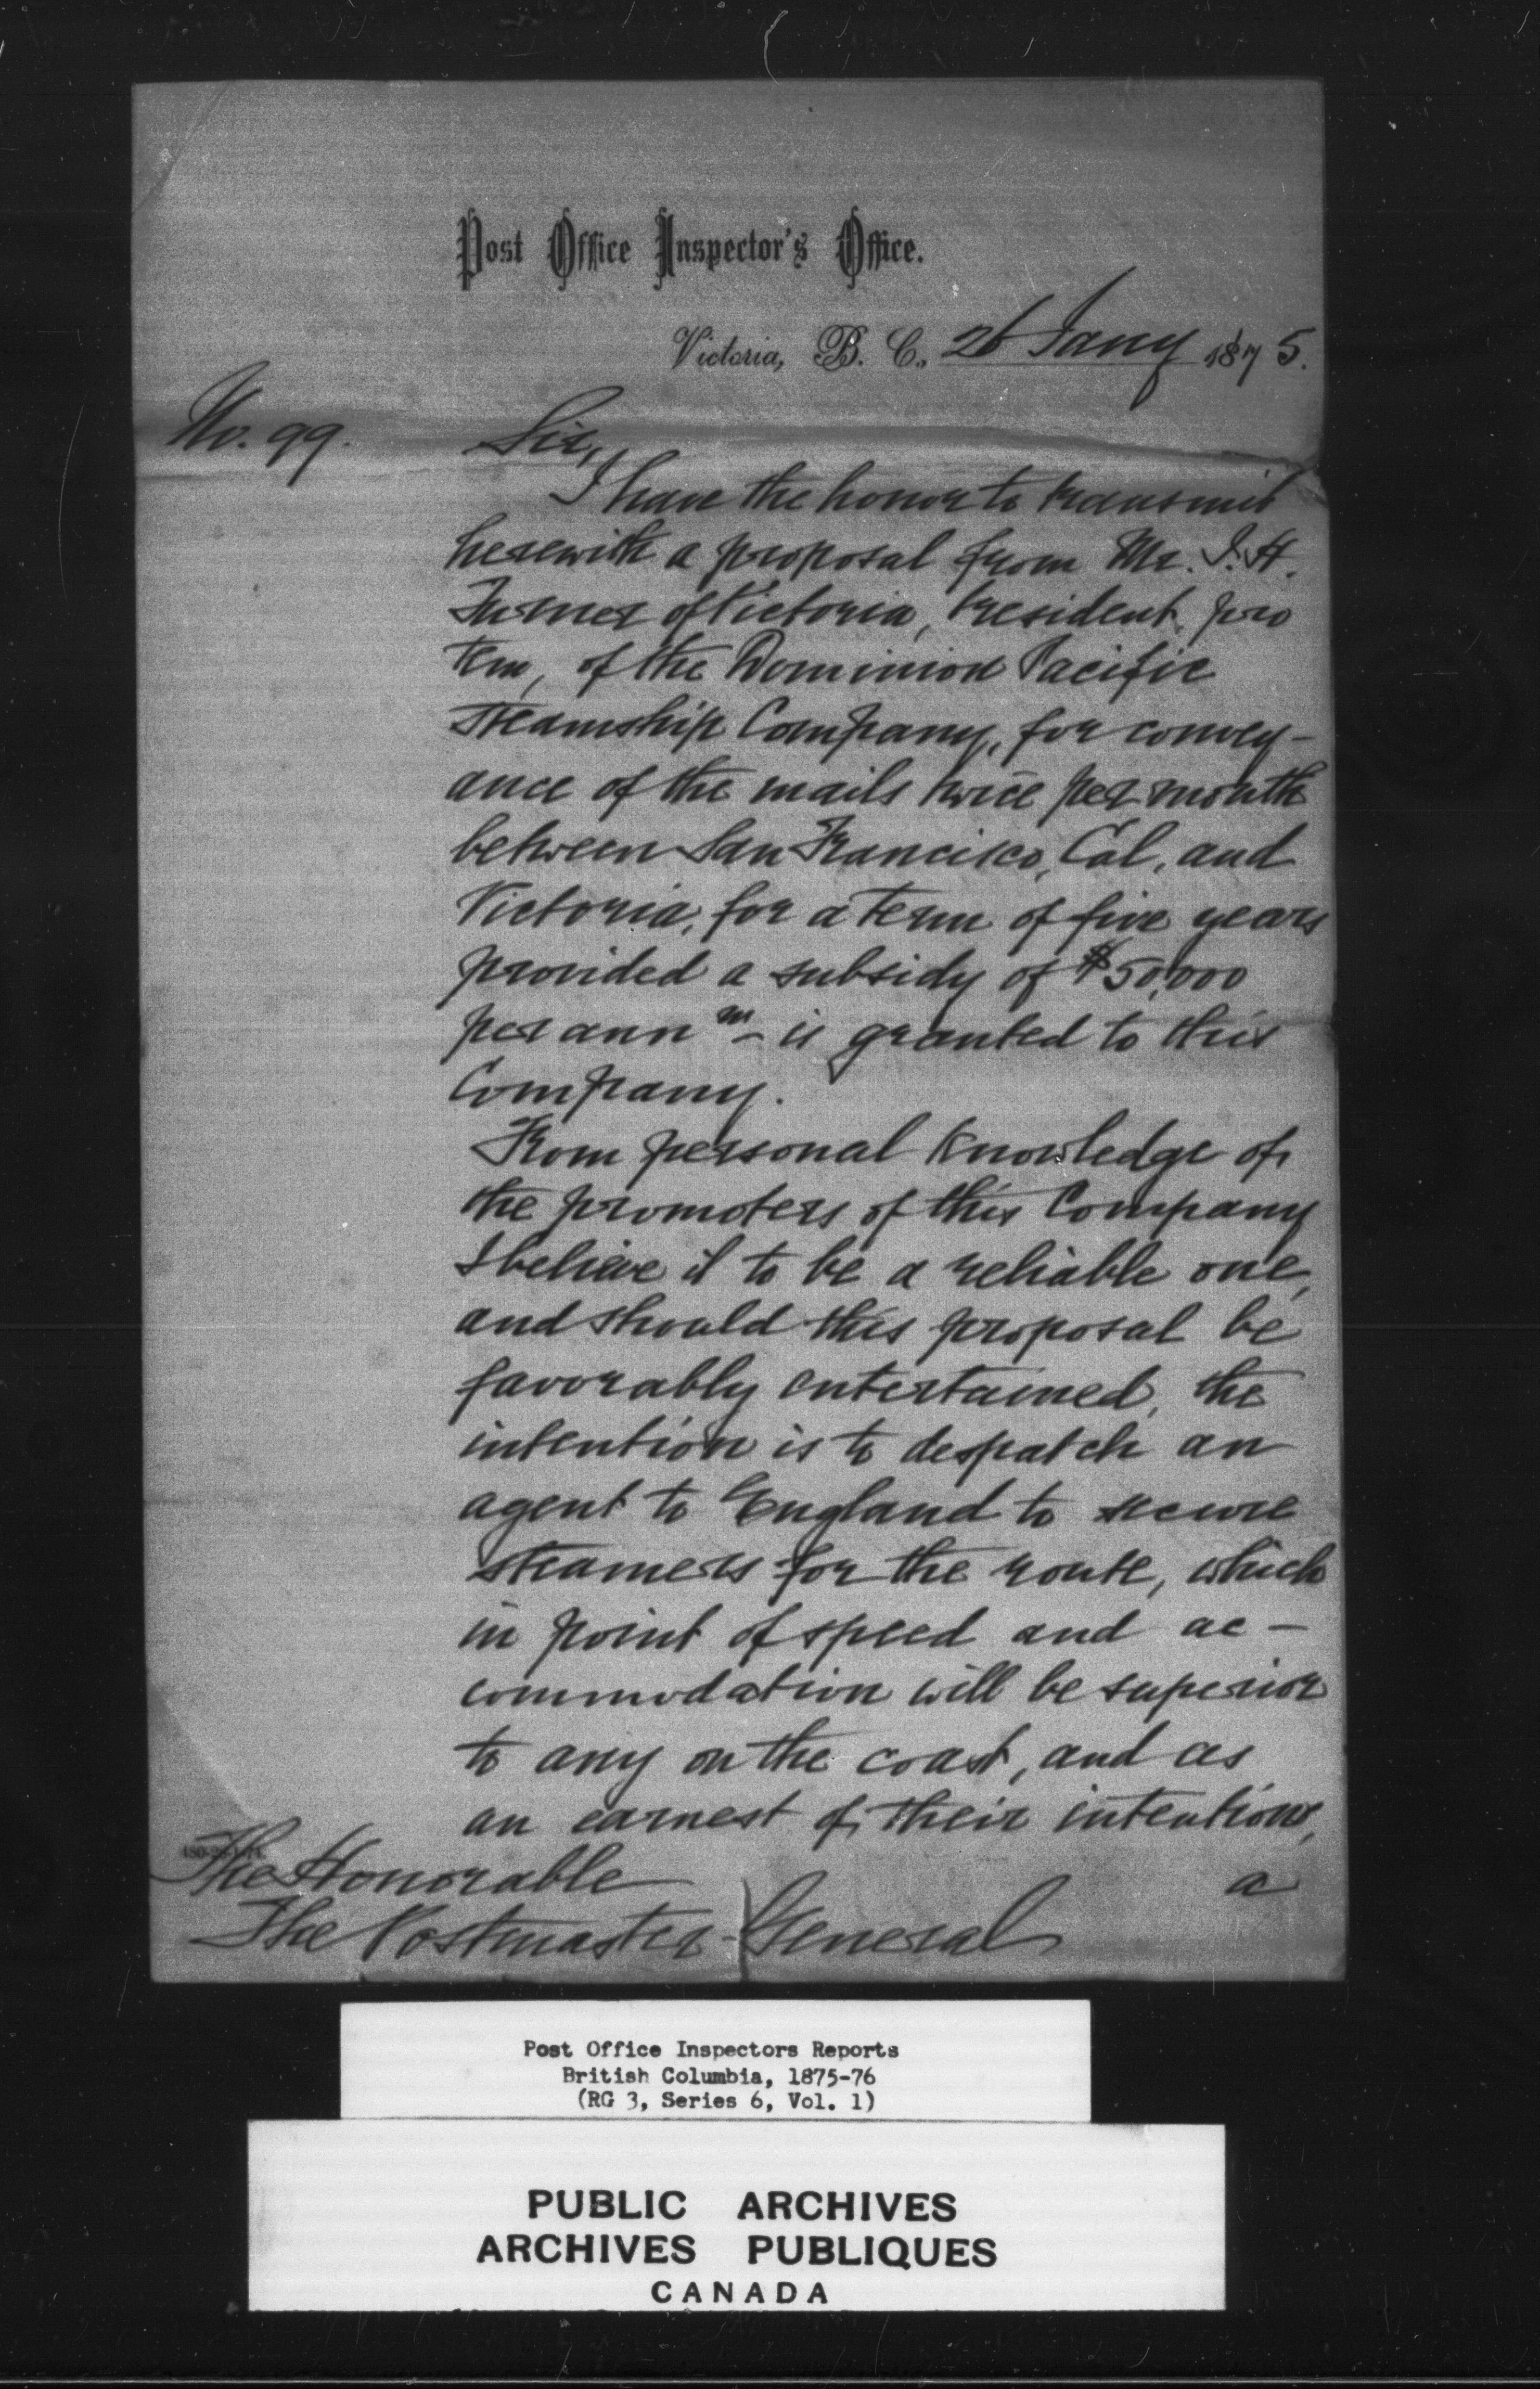 Post Office Inspector's Office.
Victoria, B. C., 26 Jany 1875.
No. 99.
Sir,
I have the honor to transmit
herewith a proposal from Mr. J. H.
Turner of Victoria, President, pro
tem, of the Dominion Pacific
Steamship Company, for convey-
ance of the mails twice per month
between San Francisco, Cal, and
Victoria, for a term of five years
provided a subsidy of $50,000
per annm is granted to this
Company.
From personal knowledge of
the promoters of this Company
I believe it to be a reliable one,
and should this proposal be
favorably entertained, the
intention is to despatch an
agent to England to secure
steamers for the route, which
in point of speed and ac-
commodation will be superior
to any on the coast, and as
an earnest of their intentions,
a
The Honorable
The Postmaster-General
Post Office Inspectors Reports
British Columbia, 1875-76
(RG 3, Series 6, Vol. 1)
PUBLIC ARCHIVES
ARCHIVES PUBLIQUES
CANADA